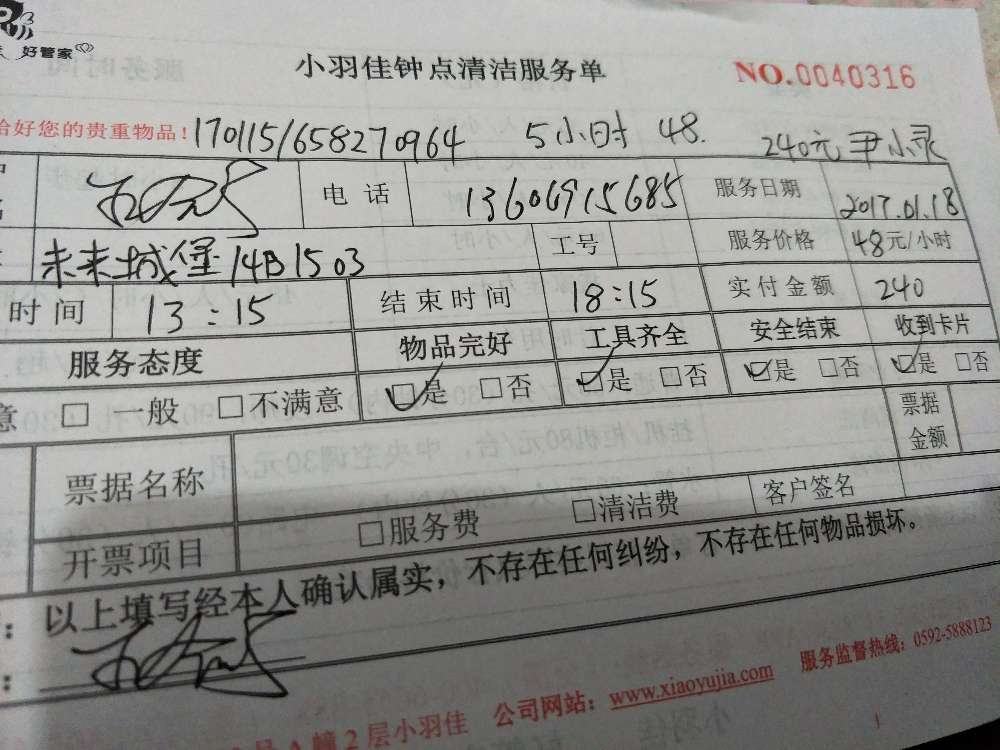 好管家
小羽佳钟点清洁服务单 NO.0040316
给好您的贵重物品! 170115/658270964 5小时 48. 240元 尹小录
电话 13606915685 服务日期 2017.01.18
未来城堡14B1503 工号 服务价格 48元/小时
时间 13:15 结束时间 18:15 实付金额 240
服务态度 物品完好 工具齐全 安全结束 收到卡片
意 □ 一般 □不满意 ☑是 □否 ☑是 □否 ☑是 □否 ☑是 □否
票据名称 票据金额
开票项目 □服务费 □清洁费 客户签名
以上填写经本人确认属实,不存在任何纠纷,不存在任何物品损坏。
幢2层小羽佳 公司网站:www.xiaoyujia.com 服务监督热线:0592-5888123